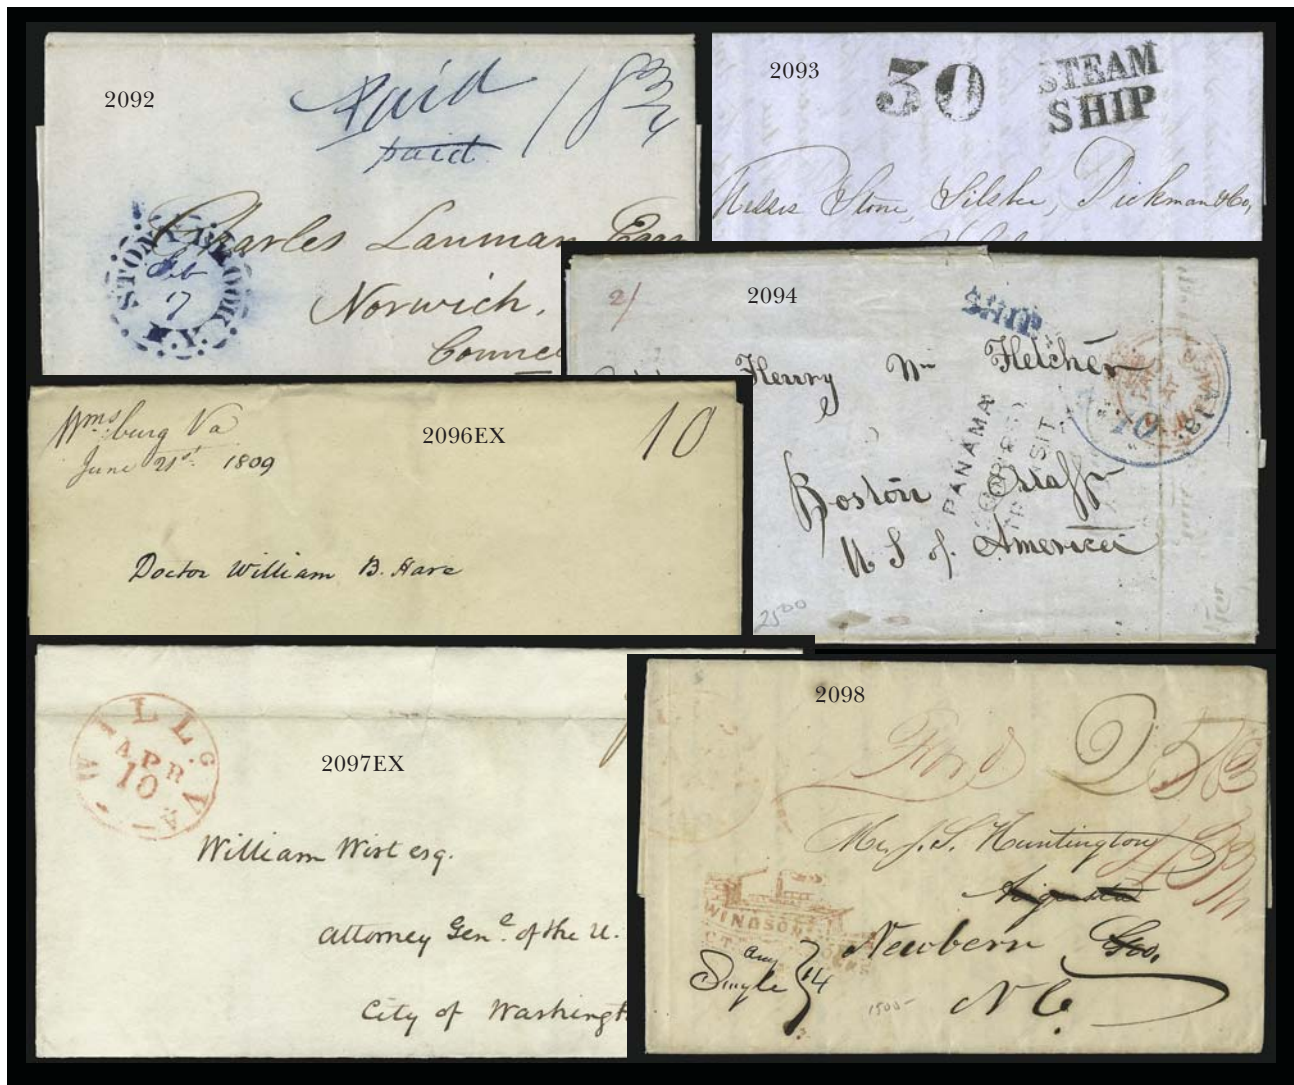 2092
Paid 18 3/4
paid
STONY BROOK N.Y.
Feb
7
Charles Lanman Esq
Norwich,
Connec
2093
30
STEAM
SHIP
Messrs Stone, Silsbee, Dickman & Co,
2094
2/
SHIP
Henry Wm Fletcher
PANAMA
TRANSIT
10
Boston Massts
U S of America
2500
2096EX
Wmsburg Va
June 21st 1809
10
Doctor William B. Hare
2097EX
WILLSG VA
APR
10
William Wirt esq.
Attorney Genl. of the U.
City of Washingt
2098
25
Mr J. S. Huntington
Augusta
Newbern Geo,
N C.
WINDSOR
Aug
14
Single
1500-